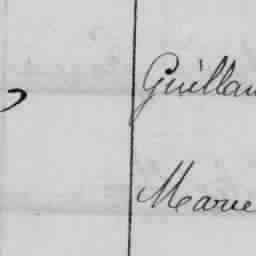 Guillau
Marie